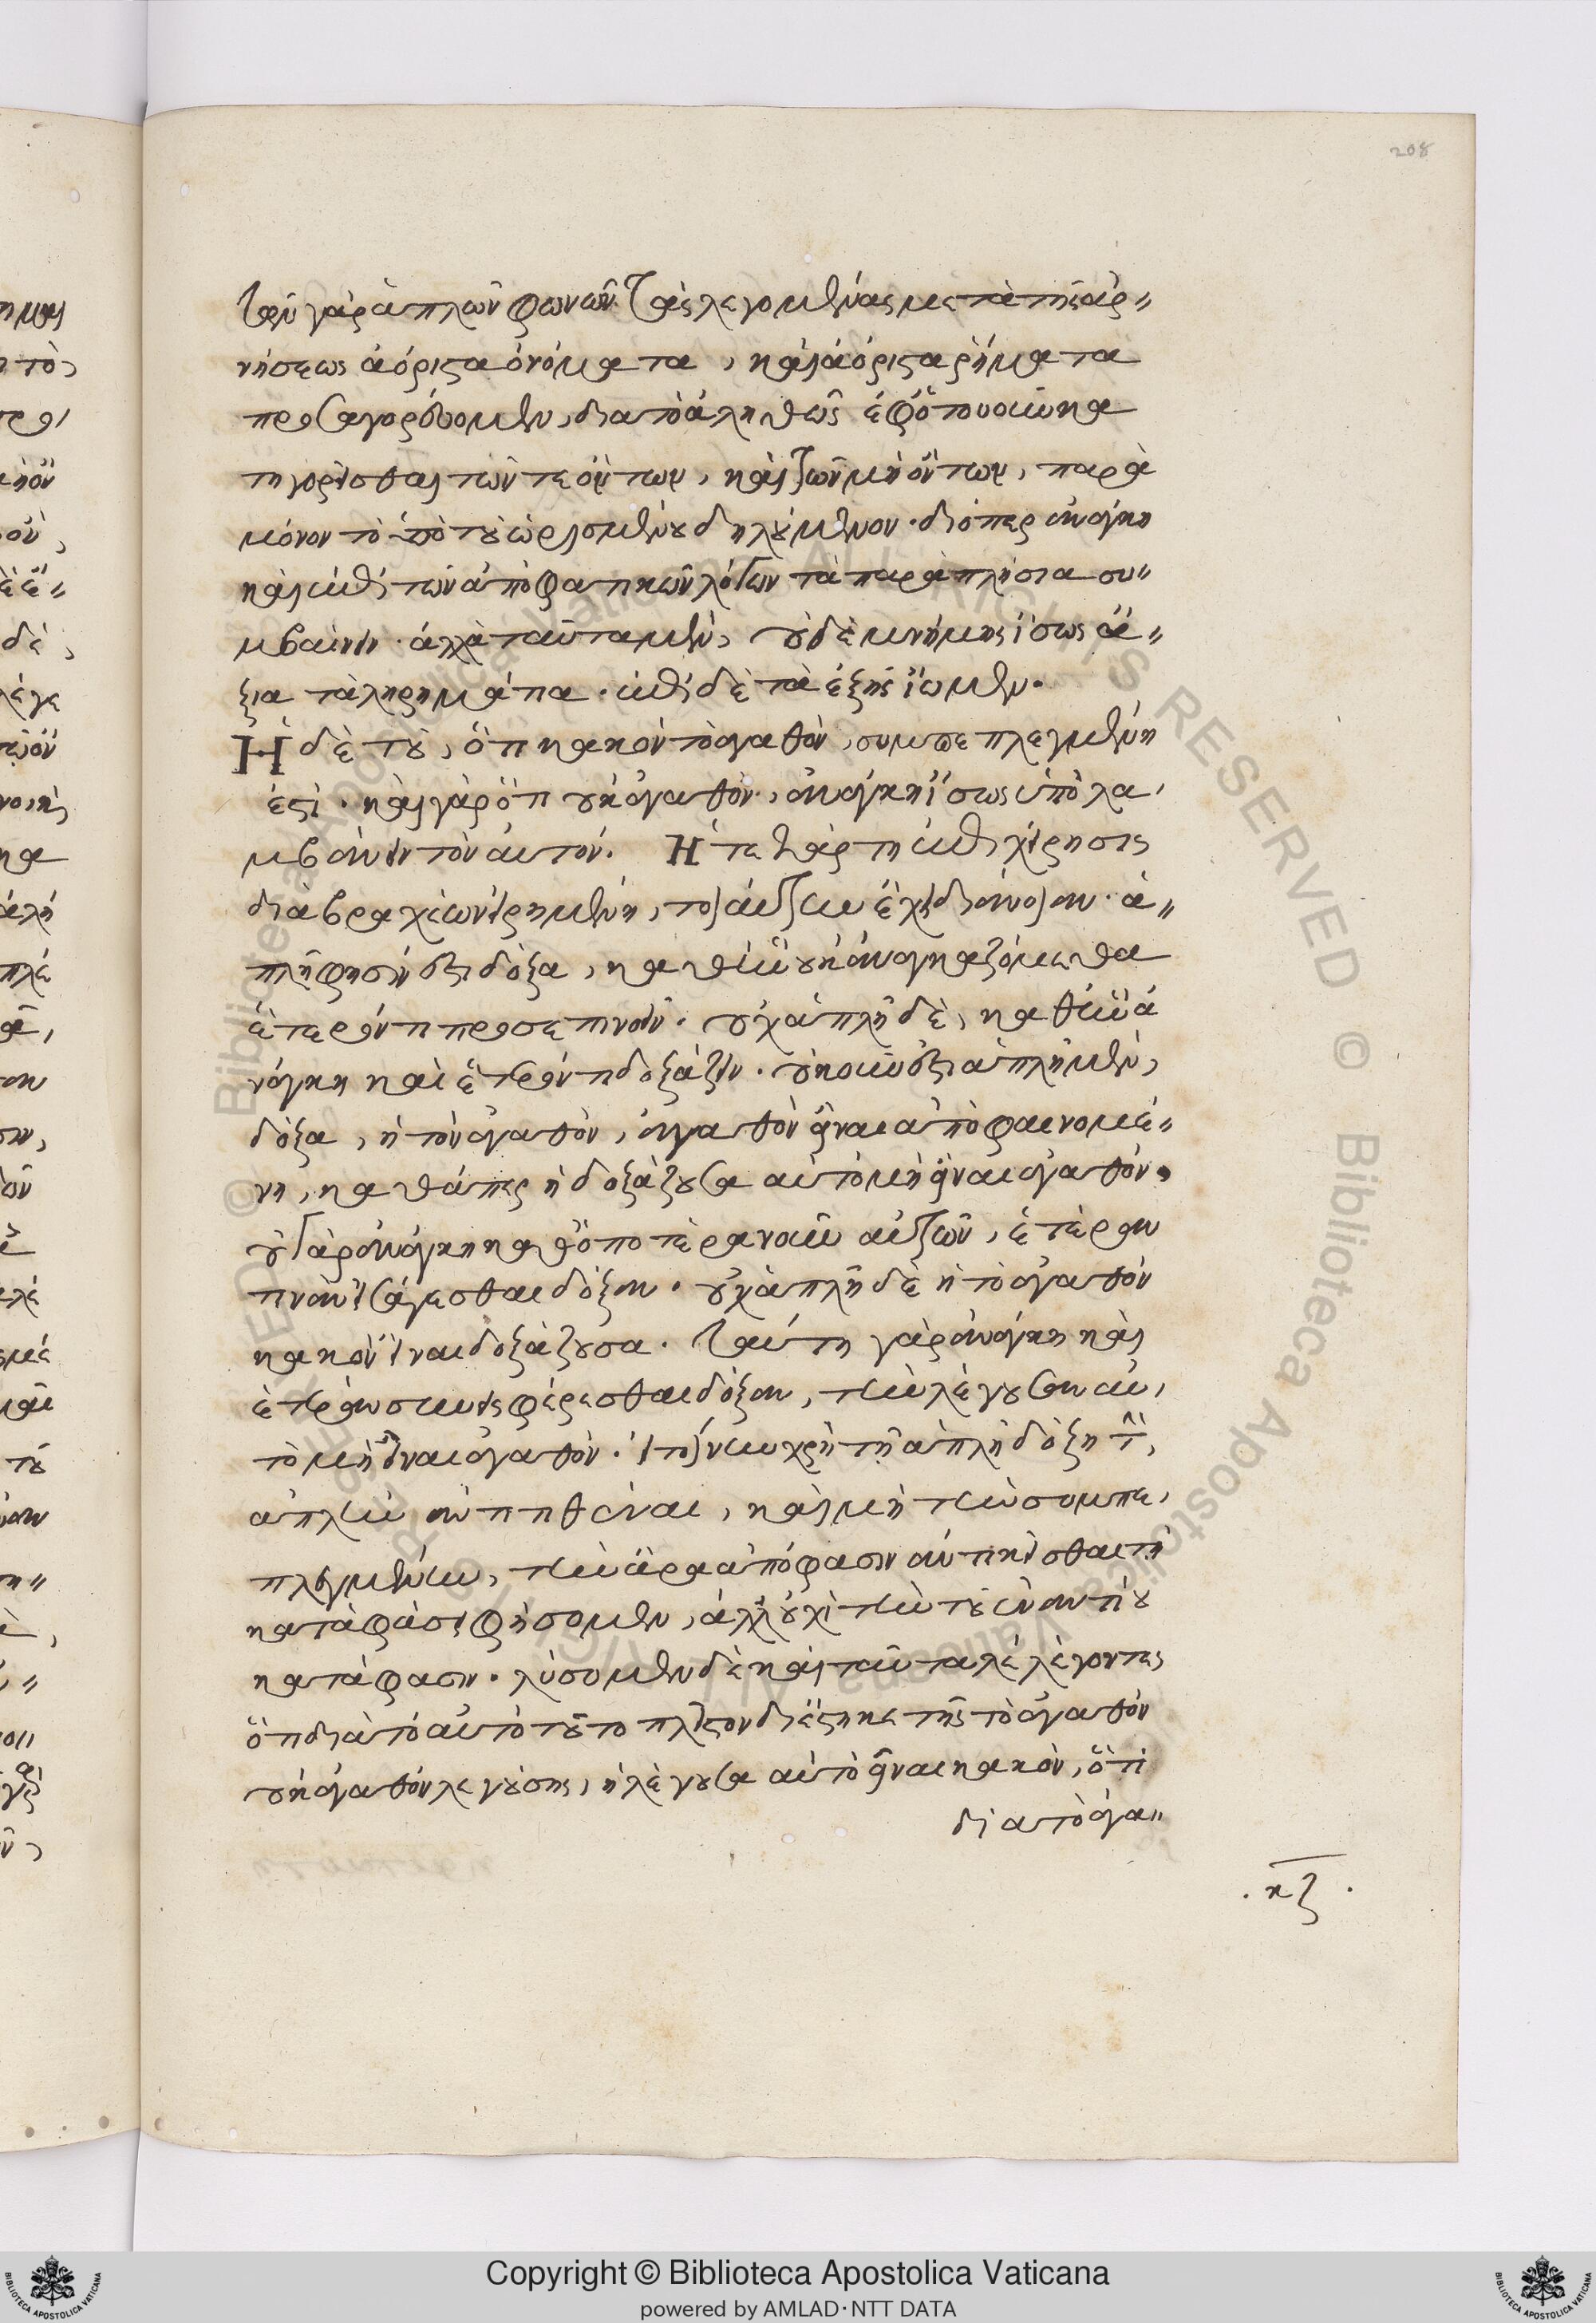 208
τῶν γὰρ ἁπλῶν φωνῶν τὰς λεγομένας μετὰ τῆς ἀρ〃
νήσεως ἀόριστα ὀνόματα, καὶ ἀόριστα ῥήματα
προσαγορεύομεν, διὰ τὸ ἀληθῶς ἐφ' ὁτουοῦν κα
τηγορεῖσθαι τῶν τε ὄντων, καὶ τῶν μὴ ὄντων, παρὰ
μόνον τὸ ὑπὸ τοῦ ὡρισμένου δηλούμενον. διόπερ ἀνάγκη
καὶ ἐπὶ τῶν ἀποφατικῶν λόγων τὰ παραπλήσια συ〃
μβαίνειν. ἀλλὰ ταῦτα μὲν, οὐδὲ μνήμης ἴσως ἄ〃
ξια τὰ ληρημάτια. ἐπὶ δὲ τὰ ἑξῆς ἴωμεν.
Ἡ δὲ τοῦ, ὅτι κακὸν τὸ ἀγαθὸν, συμπεπλεγμένη
ἐστί. καὶ γὰρ ὅτι οὐκ ἀγαθὸν, ἀνάγκη ἴσως ὑπολα,
μβάνειν τὸν αὐτόν. Ἡ τετάρτη ἐπιχείρησις
διὰ βραχέων εἰρημένη, τοιαύτην ἔχει διάνοιαν. ἁ〃
πλῆ φησίν ἐστι δόξα, καθ' ἣν οὐκ ἀναγκαζόμεθα
ἕτερόν τι προσεπινοεῖν. οὐχ ἁπλῆ δὲ, καθ' ἣν ἀ
νάγκη καὶ ἕτερόν τι δοξάζειν. οὐκοῦν ἔστι ἁπλῆ μὲν,
δόξα, ἡ τὸν ἀγαθὸν, ἀγαθὸν εἶναι ἀποφαινομέ〃
νη, καθάπερ ἡ δοξάζουσα αὐτὸ μὴ εἶναι ἀγαθόν.
οὐ γὰρ ἀνάγκη καθ' ὁποτέραν οὖν αὐτῶν, ἑτέραν
τινὰ εἰσάγεσθαι δόξαν. οὐχ ἁπλῆ δὲ ἡ τὸ ἀγαθὸν
κακὸν εἶναι δοξάζουσα. ταύτῃ γὰρ ἀνάγκη καὶ
ἑτέραν συνεισφέρεσθαι δόξαν, τὴν λέγουσαν αὐ,
τὸ μὴ εἶναι ἀγαθόν. εἰ τοίνυν χρὴ τῇ ἁπλῇ δόξῃ τὴν,
ἁπλῆν ἀντιτιθέναι, καὶ μὴ τὴν συμπε,
πλεγμένην, τὴν ἄρα ἀπόφασιν ἀντικεῖσθαι τῇ
καταφάσει φήσομεν, ἀλλ' οὐχὶ τὴν τοῦ ἐναντίου
κατάφασιν. λύσομεν δὲ καὶ ταῦτα λέγοντες
ὅτι διὰ τὸ αὐτὸ τοῦτο πλεῖστον διέστηκε τῆς τὸ ἀγαθὸν
οὐκ ἀγαθὸν λεγούσης, ἡ λέγουσα αὐτὸ εἶναι κακὸν, ὅτι
διὰ τὸ ἀγα〃
. κζ .
Copyright © Biblioteca Apostolica Vaticana
powered by AMLAD·NTT DATA